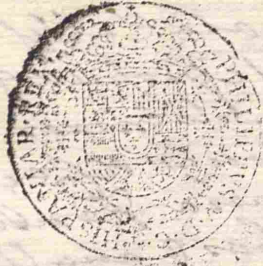 PHILIPPUS V·D·G·HISPANIAR·REX